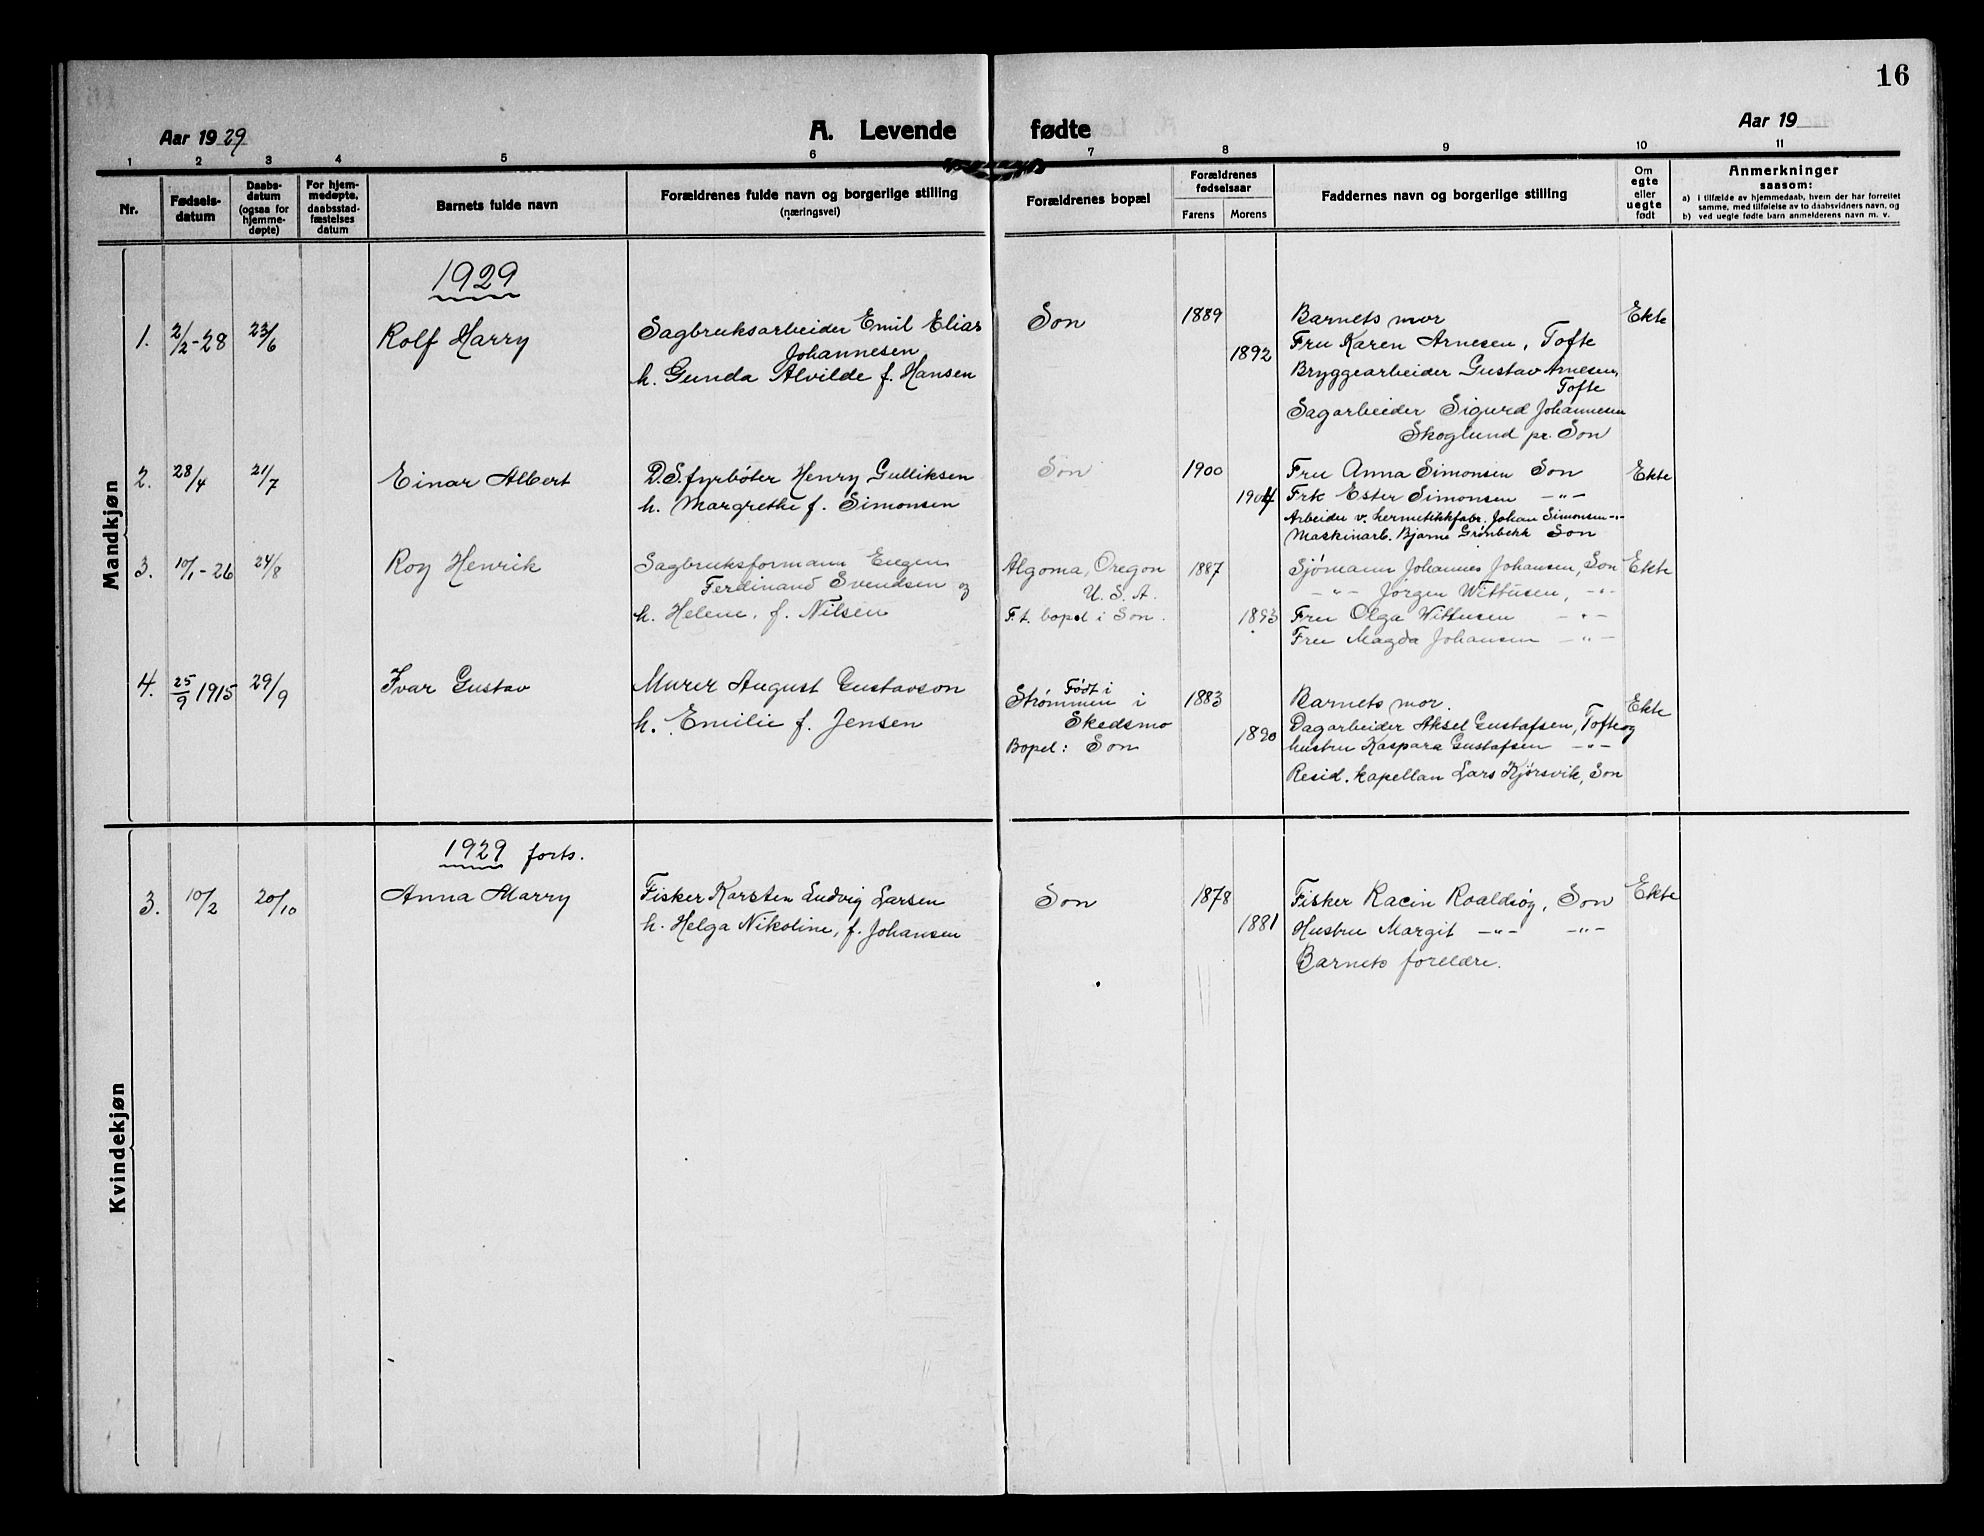 16
Aar 1929
A. Levende fødte
Aar 19
1 2 3 4 5 6 7 8 9 10 11
Nr.
Fødsels-
datum
Daabs-
datum
(ogsaa for
hjemme-
døpte)
For hjem-
medøpte,
daabsstad-
fæstelses
datum
Barnets fulde navn
Forældrenes fulde navn og borgerlige stilling
(næringsvei)
Forældrenes bopæl
Forældrenes
fødselsaar
Farens Morens
Faddernes navn og borgerlige stilling
Om
egte
eller
uegte
født
Anmerkninger
saasom:
a) i tilfælde av hjemmedaab, hvem der har forrettet
samme, med tilføielse av to daabsvidners navn, og
b) ved uegte fødte barn anmelderens navn m. v.
Mandkjøn
1929
1. 2/2-28 23/6 Rolf Harry
Sagbruksarbeider Emil Elias
Johannesen
h. Gunda Alvilde f. Hansen
Son
1889
1892
Barnets mor
Fru Karen Arnesen, Tofte
Bryggearbeider Gustav Arnesen,
Tofte
Sagarbeider Sigurd Johannesen
Skoglund pr. Son
Ekte
2. 28/4 21/7 Einar Albert
D.S. fyrbøter Henry Gulliksen
h. Margrethe f. Simonsen
Son
1900
1904
Fru Anna Simonsen Son
Frk Ester Simonsen -"-
Arbeider v. hermetikkfabr. Johan Simonsen -"-
Maskinarb. Bjarne Grønbekk Son
Ekte
3. 10/1-26 24/8 Roy Henrik
Sagbruksformann Eugen
Ferdinand Svendsen og
h. Helene, f. Nilsen
Algoma, Oregon
U.S.A.
F.t. bopel i Son.
1887
1893
Sjømann Johannes Johansen, Son
-"- Jørgen Wittusen, -"-
Fru Olga Wittusen -"-
Fru Magda Johansen -"-
Ekte
4. 25/9 1915 29/9 Ivar Gustav
Murer August Gustavson
h. Emilie f. Jensen
Født i
Strømmen i
Skedsmo
Bopel: Son
1883
1890
Barnets mor.
Dagarbeider Aksel Gustafsen, Tofte og
hustru Kaspara Gustafsen -"-
Resid. kapellan Lars Kjørsvik, Son
Ekte
Kvindekjøn
1929 forts.
3. 10/2 20/10 Anna Marry
Fisker Karsten Ludvig Larsen
h. Helga Nikoline, f. Johansen
Son
1878
1881
Fisker Racin Roaldsøy, Son
Hustru Margit -"- -"-
Barnets foreldre.
Ekte